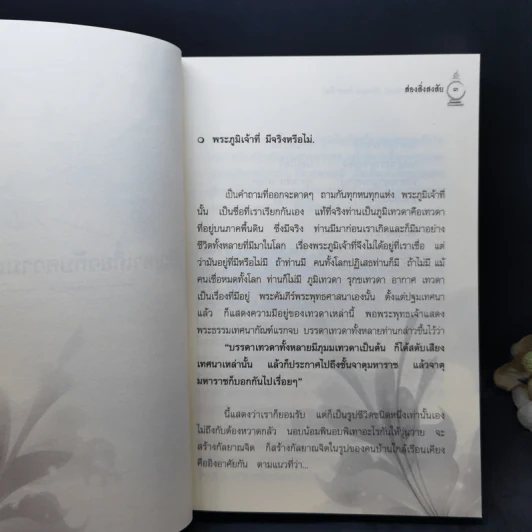 ส่องสิ่งสงสัย ๓
๑ พระภูมิเจ้าที่ มีจริงหรือไม่.
เป็นคำถามที่ออกจะดาดๆ ถามกันทุกหนทุกแห่ง พระภูมิเจ้าที่
นั้น เป็นชื่อที่เราเรียกกันเอง แท้ที่จริงท่านเป็นภูมิเทวดาคือเทวดา
ที่อยู่บนภาคพื้นดิน ซึ่งมีจริง ท่านมีมาก่อนเราเกิดและก็มีมาอย่าง
ชีวิตทั้งหลายที่มีมาในโลก เรื่องพระภูมิเจ้าที่จึงไม่ได้อยู่ที่เราเชื่อ แต่
ว่ามันอยู่ที่มีหรือไม่มี ถ้าท่านมี คนทั้งโลกปฏิเสธท่านก็มี ถ้าไม่มี แม้
คนเชื่อหมดทั้งโลก ท่านก็ไม่มี ภูมิเทวดา รุกขเทวดา อากาศ เทวดา
เป็นเรื่องที่มีอยู่ พระคัมภีร์พระพุทธศาสนาเองนั้น ตั้งแต่ปฐมเทศนา
แล้ว ก็แสดงความมีอยู่ของเทวดาเหล่านี้ พอพระพุทธเจ้าแสดง
พระธรรมเทศนากัณฑ์แรกจบ บรรดาเทวดาทั้งหลายท่านกล่าวขึ้นไว้ว่า
“บรรดาเทวดาทั้งหลายมีภุมมเทวดาเป็นต้น ก็ได้สดับเสียง
เทศนาเหล่านั้น แล้วก็ประกาศไปถึงชั้นจาตุมหาราช แล้วจาตุ
มหาราชก็บอกกันไปเรื่อยๆ”
นี้แสดงว่าเราก็ยอมรับ แต่ก็เป็นรูปชีวิตชนิดหนึ่งเท่านั้นเอง
ไม่ถึงกับต้องหวาดกลัว นอบน้อมพินอบพิเทาอะไรกันให้วุ่นวาย จะ
สร้างกัลยาณจิต ก็สร้างกัลยาณจิตในรูปของคนบ้านใกล้เรือนเคียง
คืออิงอาศัยกัน ตามแนวที่ว่า...